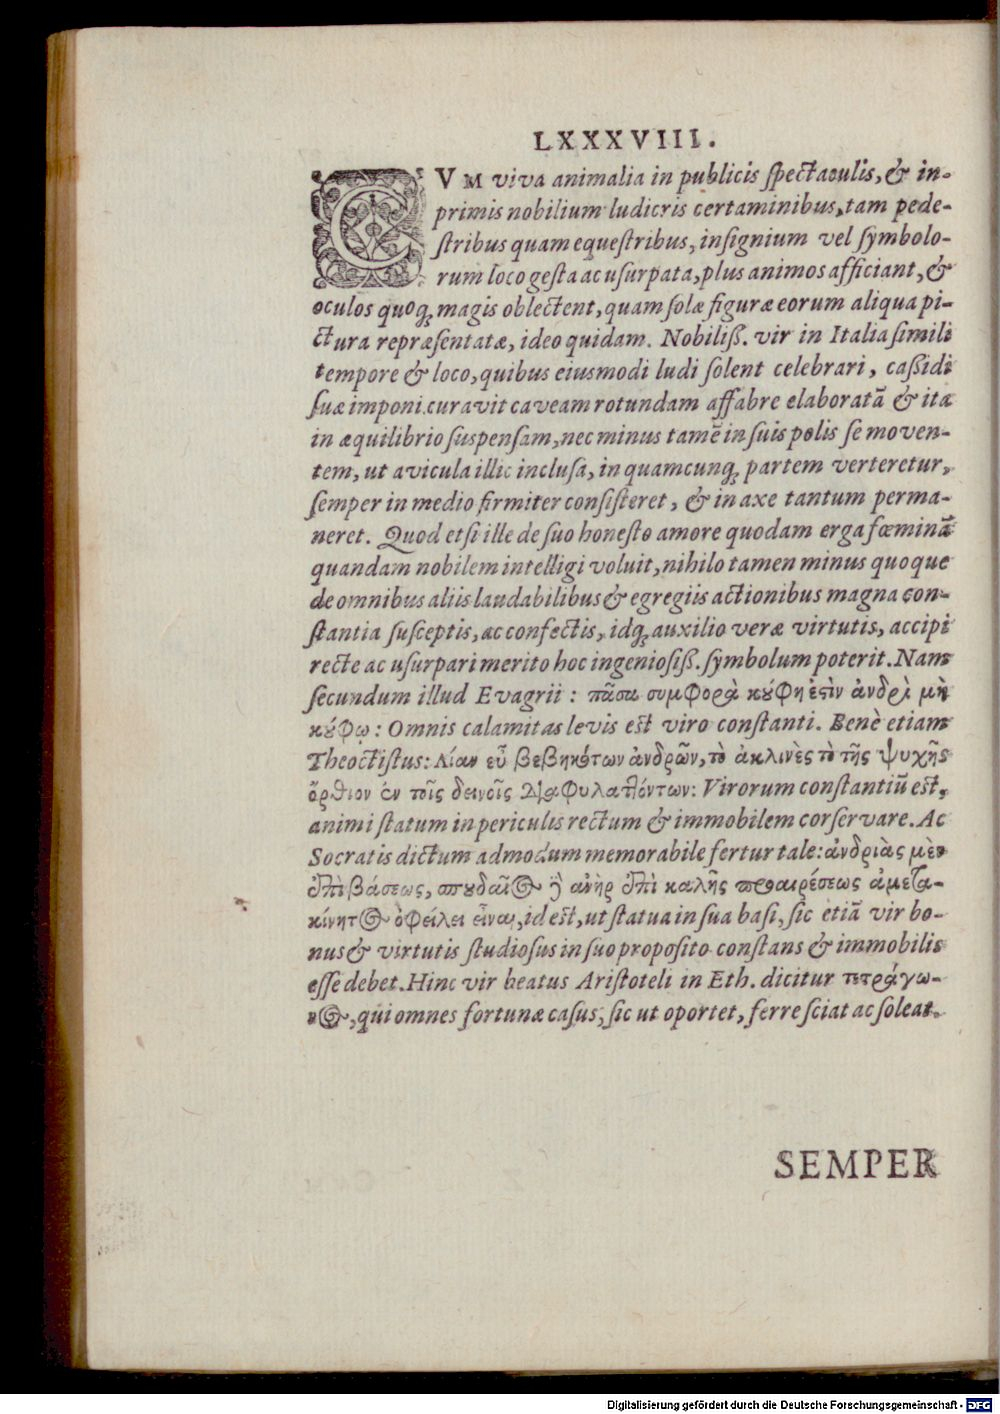 LXXXVIII.
CVM viva animalia in publicis ſpectaculis, & in-
primis nobilium ludicris certaminibus, tam pede-
ſtribus quam equeſtribus, inſignium vel ſymbolo-
rum loco geſta ac uſurpata, plus animos afficiant, &
oculos quoq; magis oblectent, quam ſolæ figuræ eorum aliqua pi-
ctura repræſentatæ, ideo quidam. Nobiliß. vir in Italia ſimili
tempore & loco, quibus eiusmodi ludi ſolent celebrari, caßidi
ſuæ imponi curavit caveam rotundam affabre elaboratã & ita
in æquilibrio ſuspenſam, nec minus tamẽ in ſuis polis ſe moven-
tem, ut avicula illic incluſa, in quamcunq; partem verteretur,
ſemper in medio firmiter conſiſteret, & in axe tantum perma-
neret. Quod etſi ille de ſuo honeſto amore quodam erga fœminã
quandam nobilem intelligi voluit, nihilo tamen minus quoque
de omnibus aliis laudabilibus & egregiis actionibus magna con-
ſtantia ſuſceptis, ac confectis, idq; auxilio veræ virtutis, accipi
recte ac uſurpari merito hoc ingenioſiß. ſymbolum poterit. Nam
ſecundum illud Evagrii: πᾶσα συμφορὰ κύφη ἐςὶν ἀνδρὶ μὴ
κύφῳ: Omnis calamitas levis est viro conſtanti. Benè etiam
Theoctiſtus: Λίαν εὖ βεβηκότων ἀνδρῶν, τὸ ἀκλινὲς τὸ τῆς ψυχῆς
ὄρθιον ἐν τοῖς δεινοῖς διαφυλαττόντων: Virorum conſtantiũ est,
animi ſtatum in periculis rectum & immobilem corſervare. Ac
Socratis dictum admodum memorabile fertur tale: ἀνδριὰς μὲν
ἐπὶ βάσεως, σπουδαῖος ἢ ἀνὴρ ἐπὶ καλῆς προαιρέσεως ἀμετα-
κίνητος ὀφείλει εἶναι, id est, ut ſtatua in ſua baſi, ſic etiã vir bo-
nus & virtutis ſtudioſus in ſuo propoſito conſtans & immobilis
eſſe debet. Hinc vir beatus Ariſtoteli in Eth. dicitur τετράγω-
νος, qui omnes fortunæ caſus, ſic ut oportet, ferre ſciat ac ſoleat.
SEMPER
Digitalisierung gefördert durch die Deutsche Forschungsgemeinschaft - DFG